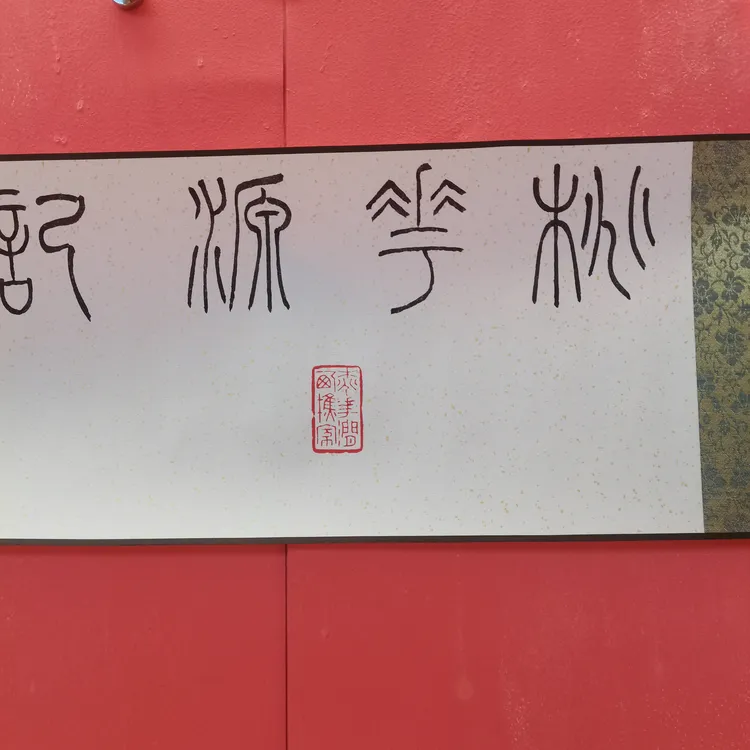 桃花源記